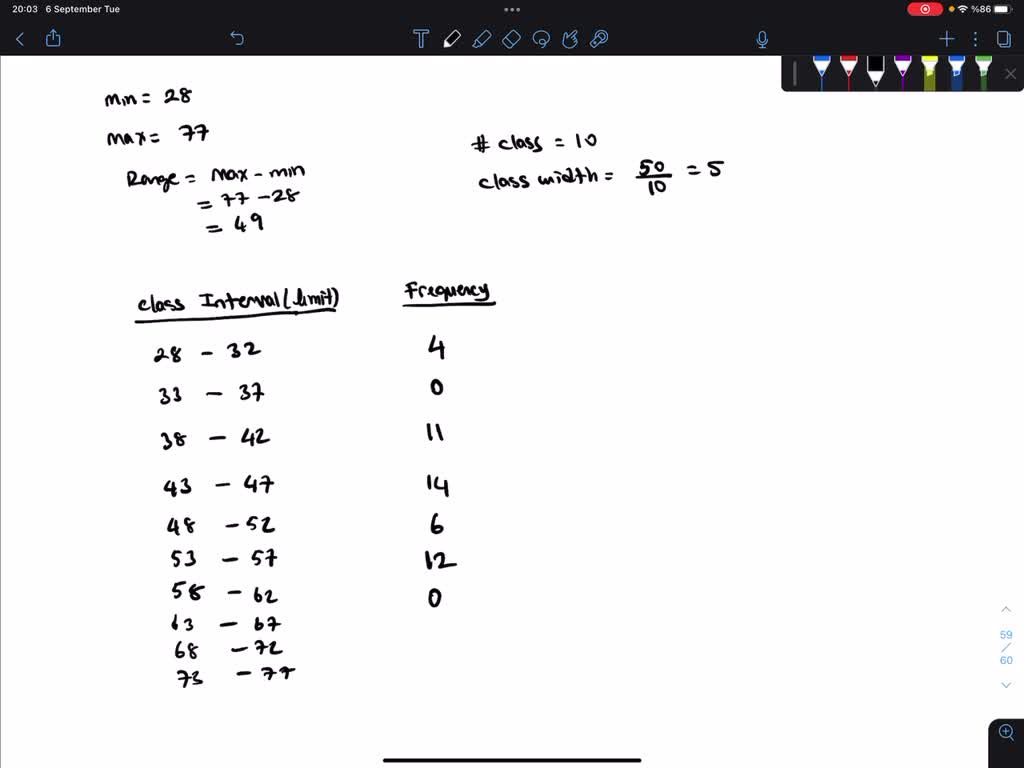 20:03 6 September Tue
%86
min = 28
max = 77
Range = max - min
= 77 - 28
= 49
# class = 10
class width = 50/10 = 5
class Interval (limit) Frequency
28 - 32 4
33 - 37 0
38 - 42 11
43 - 47 14
48 - 52 6
53 - 57 12
58 - 62 0
63 - 67
68 - 72
73 - 77
59
/
60